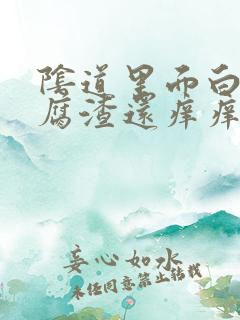 陰道里而白
腐渣還痒痒
妾心如水
未经同意禁止转载